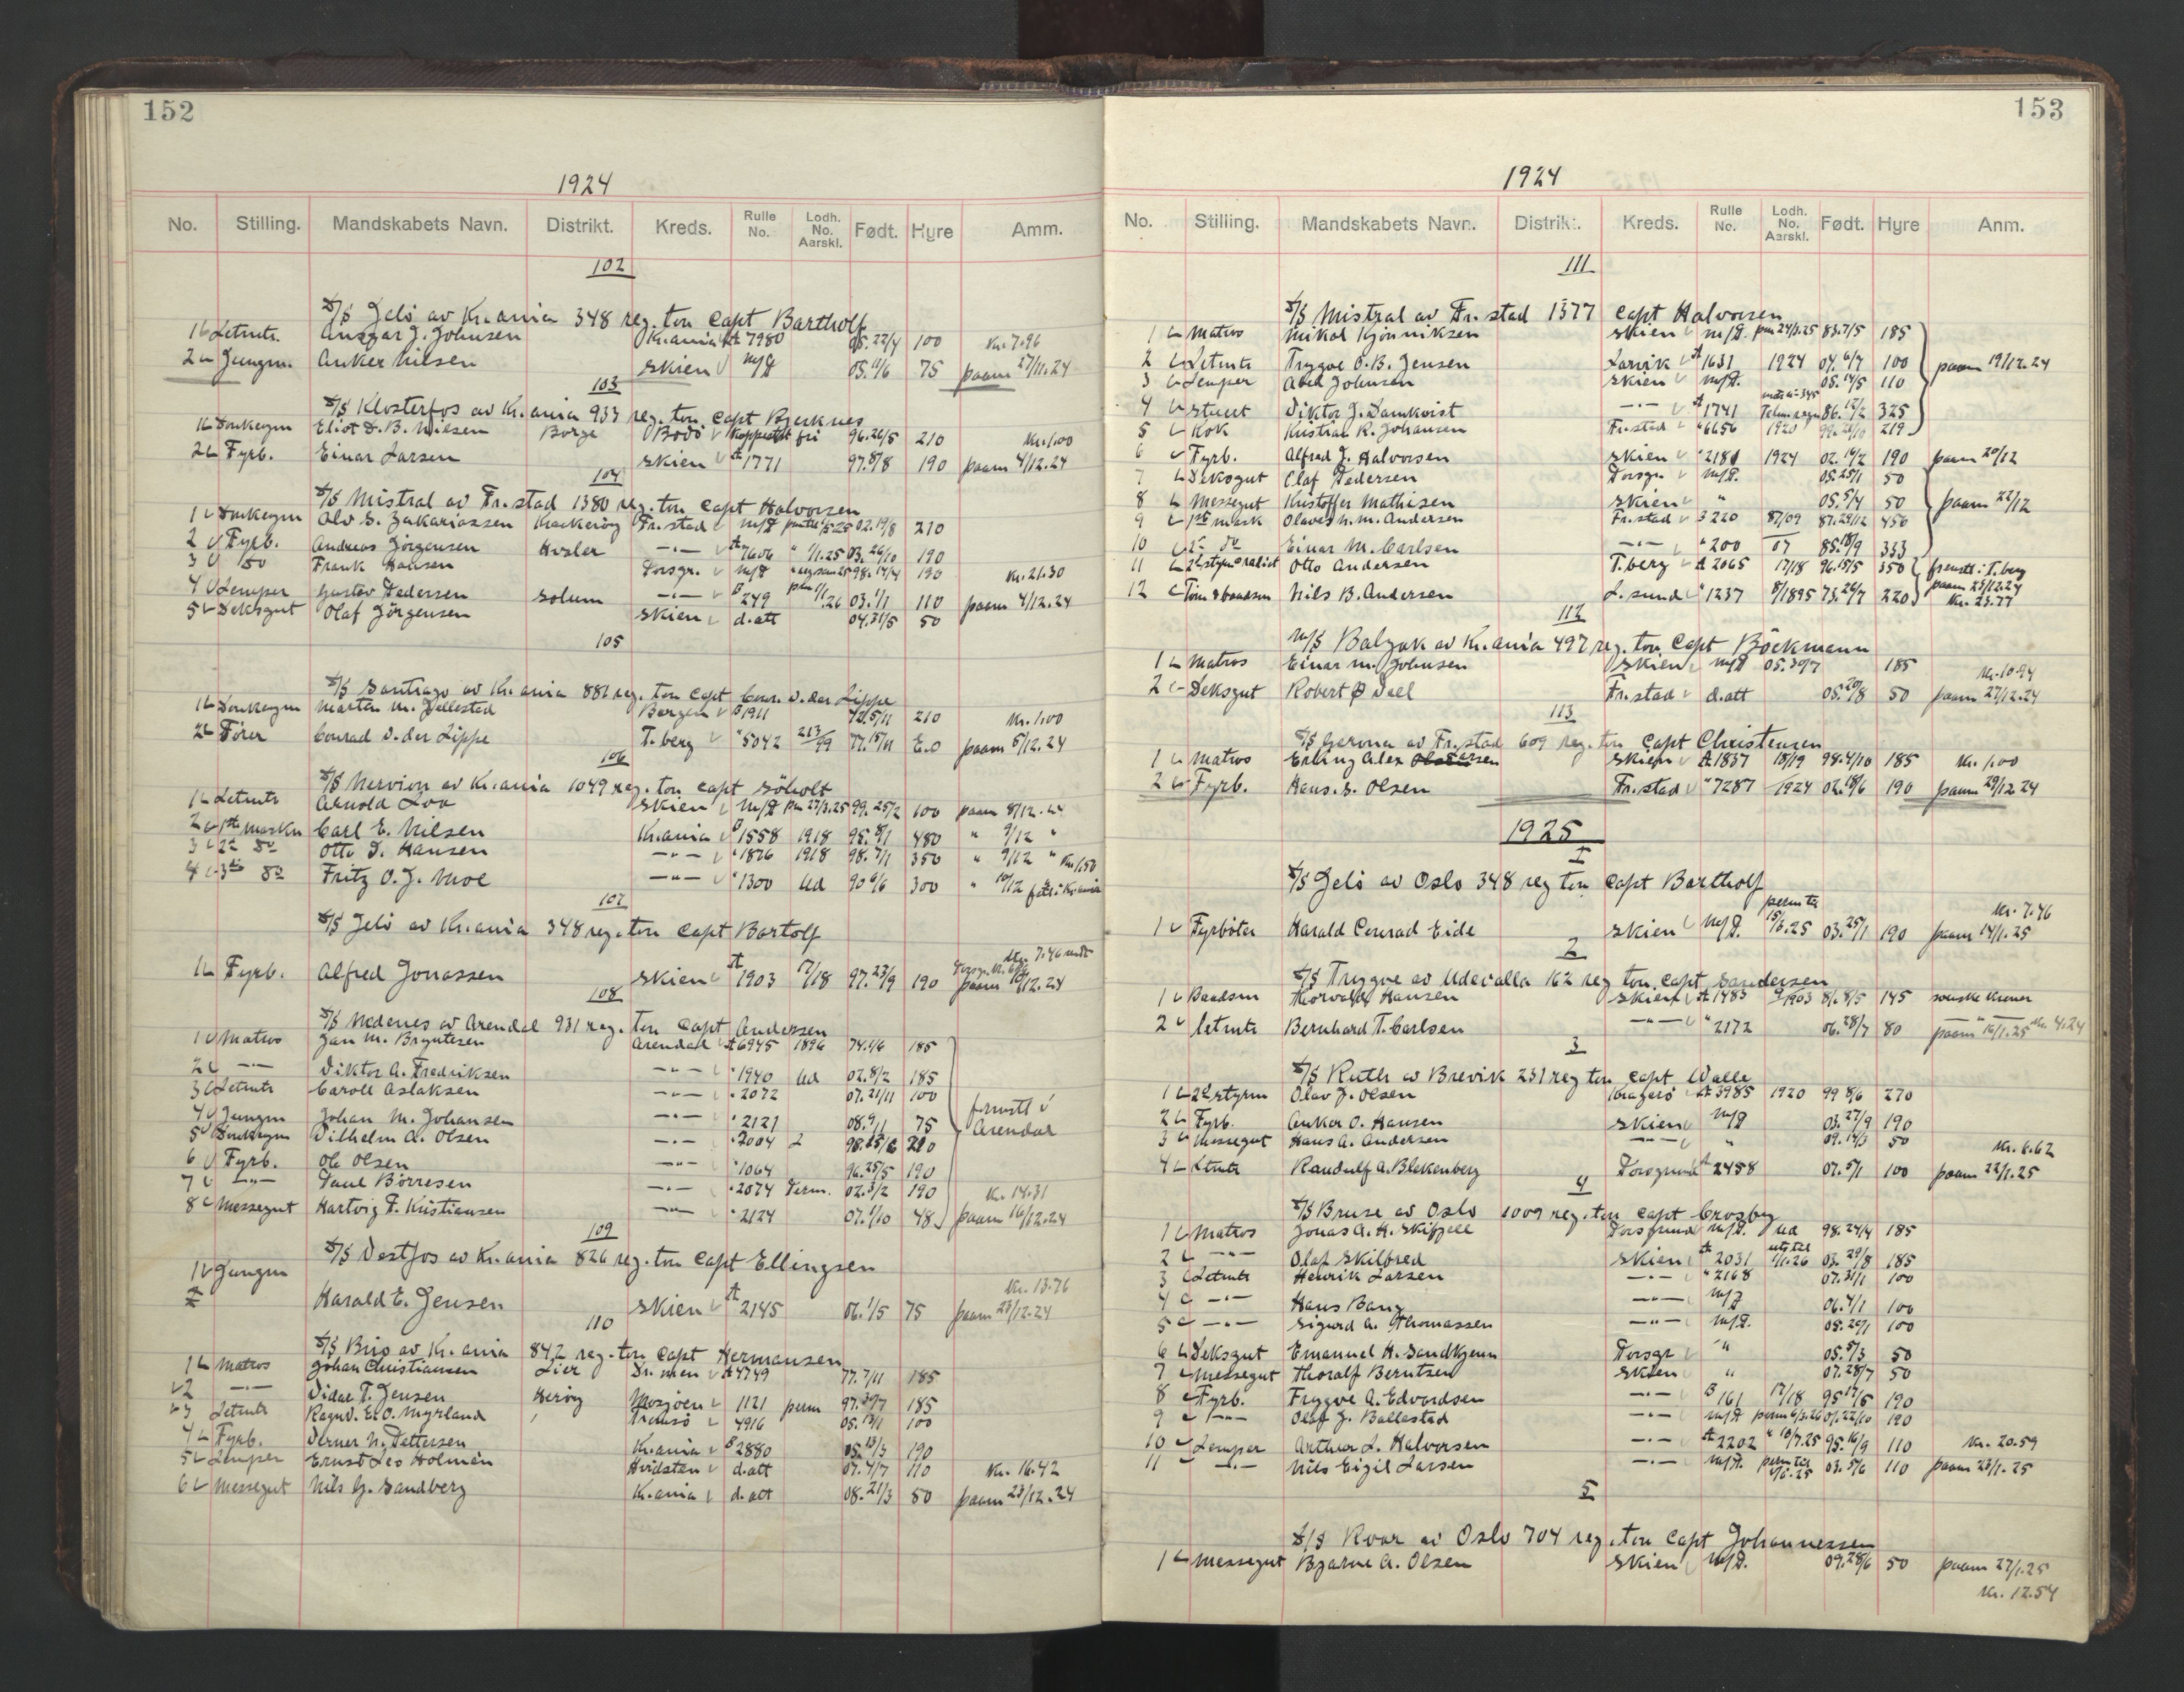 152
1924
No. Stilling. Mandskabets Navn. Distrikt. Kreds. Rulle No. Lodh. No. Aarskl. Født. Hyre Amm.
102
S/S Jelö av Kr.ania 348 reg. ton Capt Bartholf
1 Letmtr. Ansgar J. Johnsen Kr.ania A 7980 05.22/4 100 Kr. 7.96
2 Jungm. Anker Nilsen Skien m/P 05.11/6 75 paam 27/11.24
103
S/S Klosterfos av Kr.ania 933 reg. ton Capt Bjerknes
1 Donkeym Eliot D. B. Nilsen Borge Bodö fri 96.26/5 210 Kr. 1.00
2 Fyrb. Einar Larsen Skien A 1771 97.8/8 190 paam 4/12.24
104
S/S Mistral av Fr.stad 1380 reg. ton Capt Halvorsen
1 Donkeym Olv S. Zakariassen Kraakeröy Fr.stad 02.19/8 210
2 Fyrb. Andreas Jörgensen Hvaler —"— A 7606 " 1/1.25 03.26/10 190
3 Do Frank Hansen Porsgr. 98.14/4 190 Kr. 21.30
4 Lemper Gustav Pedersen Solum —"— B 249 03.1/1 110 paam 4/12.24
5 Deksgut Olaf Jörgensen Skien d.att 04.31/5 50
105
S/S Santiago av Kr.ania 881 reg. ton Capt Conr. v. der Lippe
1 Donkeym Marten M. Jellestad Bergen B 1911 210 Kr. 1.00
2 Förer Conrad v. der Lippe T.berg " 5042 213/99 77.15/11 E.O paam 5/12.24
106
S/S Nervion av Kr.ania 1049 reg. ton Capt Söholt
1 Letmtr Arnold Lov Skien 27/3.25 99.25/2 100 paam 8/12.24
2 1ste Maskn Carl E. Nilsen Kr.ania B 1558 1918 95.8/1 480 " 9/12 "
3 2n do Otto D. Hansen —"— " 1876 1918 98.7/1 350 " 9/12 " Kr. 1.50
4 3die do Fritz O. J. Moe —"— " 1300 Ud 90 6/6 300 " 10/12
107
S/S Jelö av Kr.ania 348 reg. ton Capt Bartolf
1 Fyrb. Alfred Jonassen Skien A 1903 17/18 97.23/9 190 paam 10/12.24
108
S/S Nedenes av Arendal 931 reg. ton Capt Andersen
1 Matros Jan M. Bryntesen Arendal A 6945 1896 74.1/6 185
2 —"— Viktor A. Fredriksen —"— " 1940 Ud 02.8/2 185
3 Letmtr Caroll Aslaksen —"— " 2072 07.21/11 100
4 Jungm Johan M. Johansen —"— " 2121 08.9/11 75 frmstl i Arendal
5 Donkeym Vilhelm A. Olsen —"— " 2004 2 210
6 Fyrb. Ole Olsen —"— " 1064 96.25/5 190
7 —"— Paul Börresen —"— " 2074 Perm. 02.3/2 190 Kr. 14.31
8 Messegut Hartvig F. Kristiansen —"— " 2124 07.1/10 48 paam 16/12.24
109
S/S Vestfos av Kr.ania 826 reg. ton Capt Ellingsen
1 Jungm Harald E. Jensen Skien A 2145 06.1/5 75 Kr. 13.76 paam 23/12.24
110
S/S Brio av Kr.ania 842 reg. ton Capt Hermansen
1 Matros Johan Christiansen Lier Dr.men A 4749 77.7/11 185
2 —"— Vidar T. Jensen Heröy Mosjöen 1121 perm 97.30/7 185
3 Letmtr Ragnv. E. O. Myrland Tromsö 4916 05.13/1 100
4 Fyrb. Verner N. Pettersen Kr.ania B 2880 05.13/3 190
5 Lemper Ernst Leo Holmén Hvidsten d.att 07.4/7 110 Kr. 16.42
6 Messegut Nils G. Sandberg Kr.ania d.att 08.21/3 50 paam 23/12.24
153
1924
No. Stilling. Mandskabets Navn. Distrikt. Kreds. Rulle No. Lodh. No. Aarskl. Født. Hyre Anm.
111
S/S Mistral av Fr.stad 1377 Capt Halvorsen
1 Matros Mikal Kjönniksen Skien m/P. 24/3.25 83.7/5 185
2 Letmtr Trygve O. B. Jensen Larvik A 1631 1924 04.6/7 100 paam 19/12.24
3 Lemper Abel Johnsen Skien m/P. 05.14/5 110
4 Stuert Viktor J. Damkvist —"— A 1741 86.12/2 325
5 Kok Kristian R. Johansen Fr.stad " 6656 1920 219
6 Fyrb. Alfred J. Halvorsen Skien " 2181 1924 02.14/2 190 paam 20/12
7 Deksgut Olaf Pedersen Porsgr. m/P. 05.25/1 50
8 Messegut Kristoffer Mathisen Skien " 05.5/4 50 paam 22/12
9 1ste Mask Olaves N. M. Andersen Fr.stad B 220 87/09 87.29/12 450
10 2n do Einar M. Carlsen —"— " 200 07 85.18/9 333
11 Otto Andersen T.berg A 2065 17/18 96.15/5 350 fremstl i T.berg
12 Töm & baadsm Nils B. Andersen L.sund " 1237 8/1895 73.26/7 220 paam 23/12.24 Kr. 23.77
112
M/S Balzak av Kr.ania 497 reg. ton Capt Böckmann
1 Matros Einar M. Johnsen Skien m/P 05.30/7 185 Kr. 10.94
2 Deksgut Robert Dall Fr.stad d.att 05.20/8 50 paam 27/12.24
113
S/S Gerona av Fr.stad 609 reg. ton Capt Christensen
1 Matros Erling Alex Larsen Skien A 1837 18/19 98.4/10 185 Kr. 1.00
2 Fyrb. Hans. S. Olsen Fr.stad " 7287 1924 02.18/6 190 paam 29/12 24
1925
1
S/S Jelö av Oslo 348 reg ton Capt Bartholf
1 Fyrböter Harald Conrad Eide Skien m/P. perm til 15/6.25 03.25/1 190 Kr. 7.46 paam 14/1.25
2
S/S Trygve av Udevalla 162 reg ton Capt Sandersen
1 Baadsm Thorvald Hansen Skien A 1483 9/1903 81.8/5 145 svenske Kroner
2 Letmtr Bernhard T. Carlsen —"— " 2172 06.28/7 80 paam 16/1.25 Kr. 4.24
3
S/S Ruth av Brevik 231 reg ton Capt Walle
1 2n Styrm Olav J. Olsen Kragerö A 3985 1920 99 8/6 270
2 Fyrb. Anker O. Hansen Skien m/P 03.27/9 190
3 Messegut Hans A. Andersen —"— " 09.14/3 50 Kr. 8.62
4 Ltmtr Randulf A. Blekenberg Porsgrund A 2458 07.5/1 100 paam 22/1.25
4
S/S Bruse av Oslo 1009 reg. ton Capt Crosby
1 Matros Jonas A. H. Skifjell Porsgrund m/P. Ud 98.24/4 185
2 —"— Olaf Skilfred Skien A 2031 uts til 1/1.26 03.29/8 185
3 Letmtr Henrik Larsen —"— " 2168 07.31/1 100
4 —"— Hans Bang —"— m/P 06.4/1 100
5 —"— Sigurd A. Thomassen —"— m/P. 05.20/1 100
6 Deksgut Emanuel H. Sandkjenn Porsgr " 05.5/3 50
7 Messegut Thoralf Berntsen Skien " 07.28/7 50
8 Fyrb. Trygve A. Edvardsen —"— B 161 17/18 95 17/5 190
9 —"— Olaf J. Ballestad —"— m/P perm 6/3.26 01.22/10 190
10 Lemper Arthur L. Halvorsen —"— A 2202 " 18/7.25 95.16/9 110 Kr. 20.59
11 —"— Nils Eigil Larsen —"— m/P. perm til 03.5/6 110 paam 23/1.25
5
S/S Roar av Oslo 704 reg. ton Capt Johannessen
1 Messegut Bjarne A. Olsen Skien m/P. 09.28/6 50 paam 27/1.25
Kr. 12.54